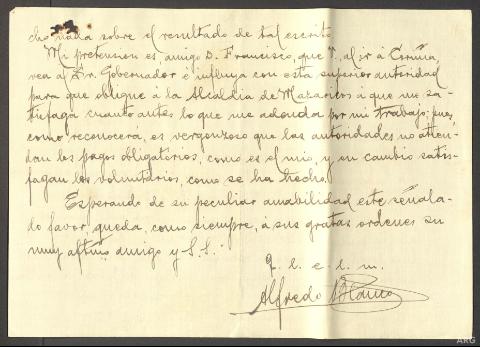 cho nada sobre el resultado de tal escrito.
Mi pretension es, amigo D. Francisco, que V. al ir á Coruña,
vea al Sr. Gobernador é influya con esta superior autoridad
para que obligue á la Alcaldia de Mazaricos á que me sa-
tisfaga cuanto antes lo que me adeuda por mi trabajo; pues,
como reconocerá, es vergonzoso que las autoridades no atien-
dan los pagos obligatorios, como es el mio, y en cambio satis-
fagan los voluntarios, como se ha hecho.
Esperando de su peculiar amabilidad este señala-
do favor, queda, como siempre, á sus gratas ordenes su
muy affmo. amigo y S.S.
q. l. e. l. m.
Alfredo Blanco
ARG